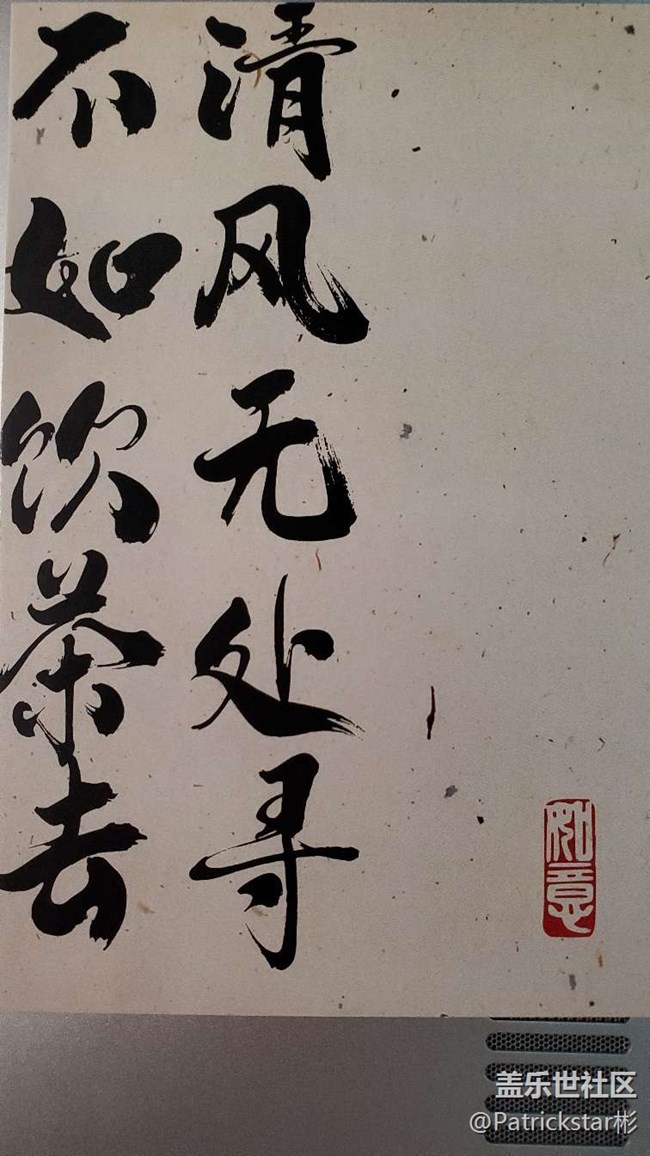 清风无处寻
不如饮茶去
如意
盖乐世社区
@Patrickstar彬